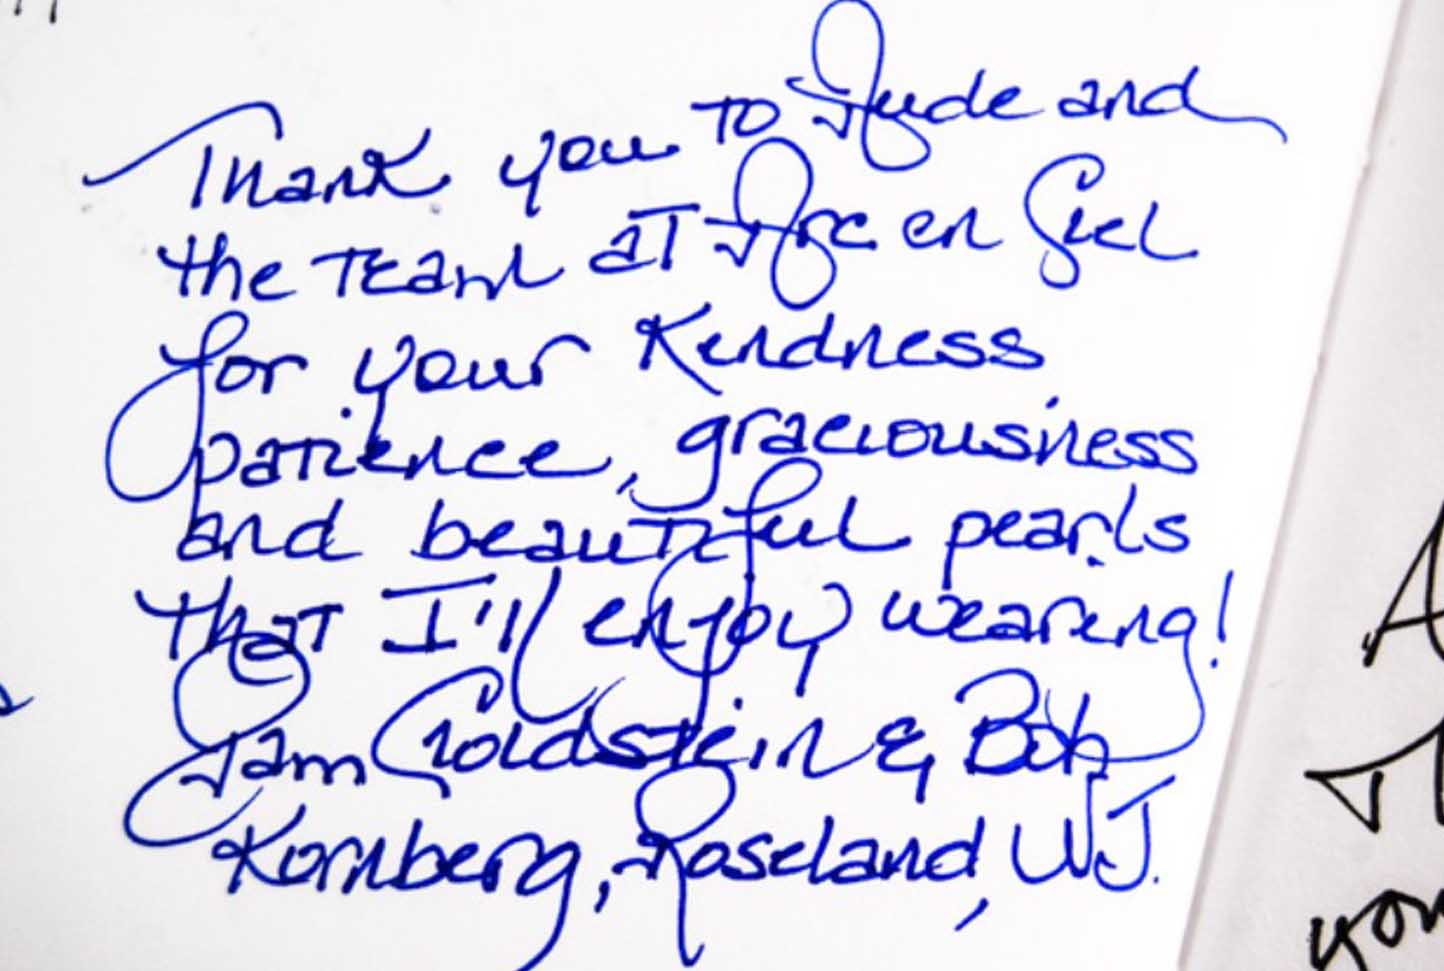 Thank you to Jude and
the team at Arc en Ciel
for your kindness
patience, graciousness
and beautiful pearls
that I'll enjoy wearing!
Pam Goldstein & Bob
Kornberg, Roseland, NJ.